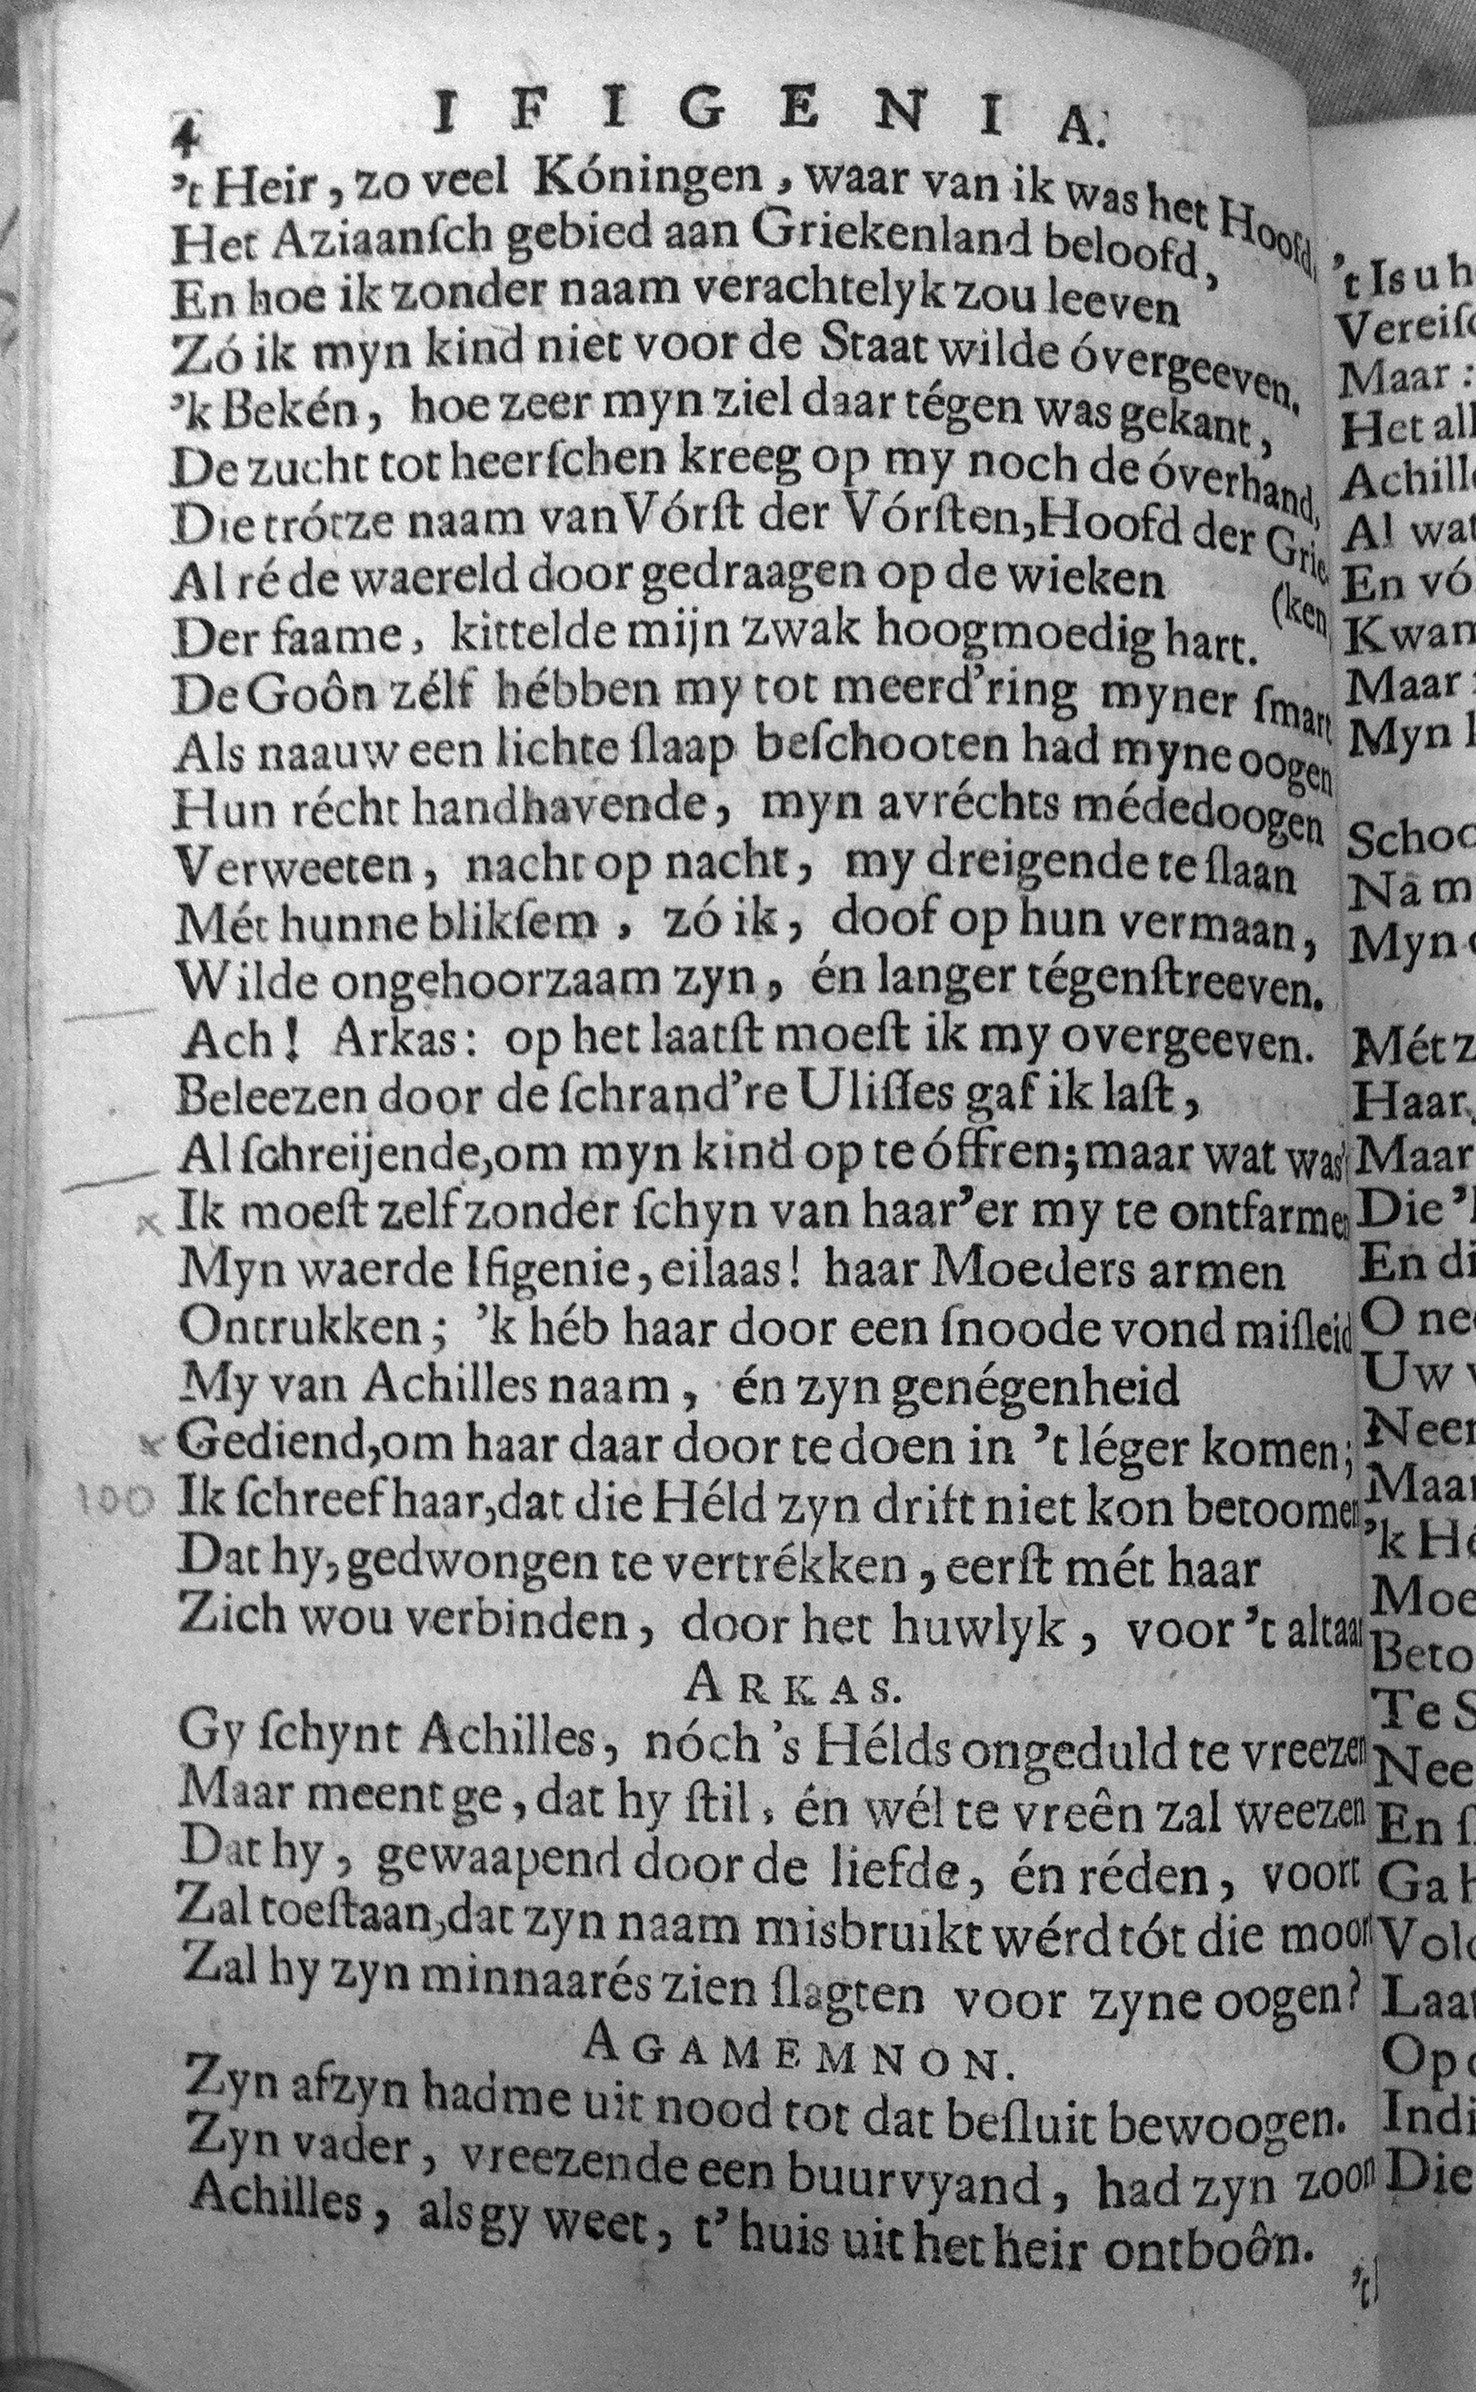 4 IFIGENIA.
't Heir, zo veel Kóningen, waar van ik was het Hoofd,
Het Aziaanſch gebied aan Griekenland beloofd,
En hoe ik zonder naam verachtelyk zou leeven
Zó ik myn kind niet voor de Staat wilde óvergeeven.
'k Bekén, hoe zeer myn ziel daar tégen was gekant,
De zucht tot heerſchen kreeg op my noch de óverhand,
Die trótze naam van Vórſt der Vórſten, Hoofd der Grie
(ken
Al ré de waereld door gedraagen op de wieken
Der faame, kittelde mijn zwak hoogmoedig hart.
De Goôn zélf hébben my tot meerd'ring myner ſmart
Als naauw een lichte ſlaap beſchooten had myne oogen
Hun récht handhavende, myn avréchts médedoogen
Verweeten, nacht op nacht, my dreigende te ſlaan
Mét hunne blikſem, zó ik, doof op hun vermaan,
Wilde ongehoorzaam zyn, én langer tégenſtreeven.
Ach! Arkas: op het laatſt moeſt ik my overgeeven.
Beleezen door de ſchrand're Uliſſes gaf ik laſt,
Al ſchreijende, om myn kind op te óffren; maar wat was
Ik moeſt zelf zonder ſchyn van haar'er my te ontfarmen
Myn waerde Ifigenie, eilaas! haar Moeders armen
Ontrukken; 'k héb haar door een ſnoode vond miſleid
My van Achilles naam, én zyn genégenheid
Gediend, om haar daar door te doen in 't léger komen;
100 Ik ſchreef haar, dat die Héld zyn drift niet kon betoomen,
Dat hy, gedwongen te vertrékken, eerſt mét haar
Zich wou verbinden, door het huwlyk, voor 't altaar
ARKAS.
Gy ſchynt Achilles, nóch 's Hélds ongeduld te vreezen
Maar meent ge, dat hy ſtil, én wél te vreên zal weezen
Dat hy, gewaapend door de liefde, én réden, voort
Zal toeſtaan, dat zyn naam misbruikt wérd tót die moort
Zal hy zyn minnaarés zien ſlagten voor zyne oogen?
AGAMEMNON.
Zyn afzyn had me uit nood tot dat beſluit bewoogen.
Zyn vader, vreezende een buurvyand, had zyn zoon
Achilles, als gy weet, t'huis uit het heir ontboôn.
't
't Is u h
Vereiſc
Maar :
Het all
Achille
Al wat
En vó
Kwam
Maar
Myn
Schoo
Na m
Myn
Mét z
Haar
Maar
Die '
En di
O nee
Uw
Neer
Maar
'k Hé
Moe
Beto
Te S
Nee
En ſ
Ga h
Vold
Laat
Op
Indi
Die